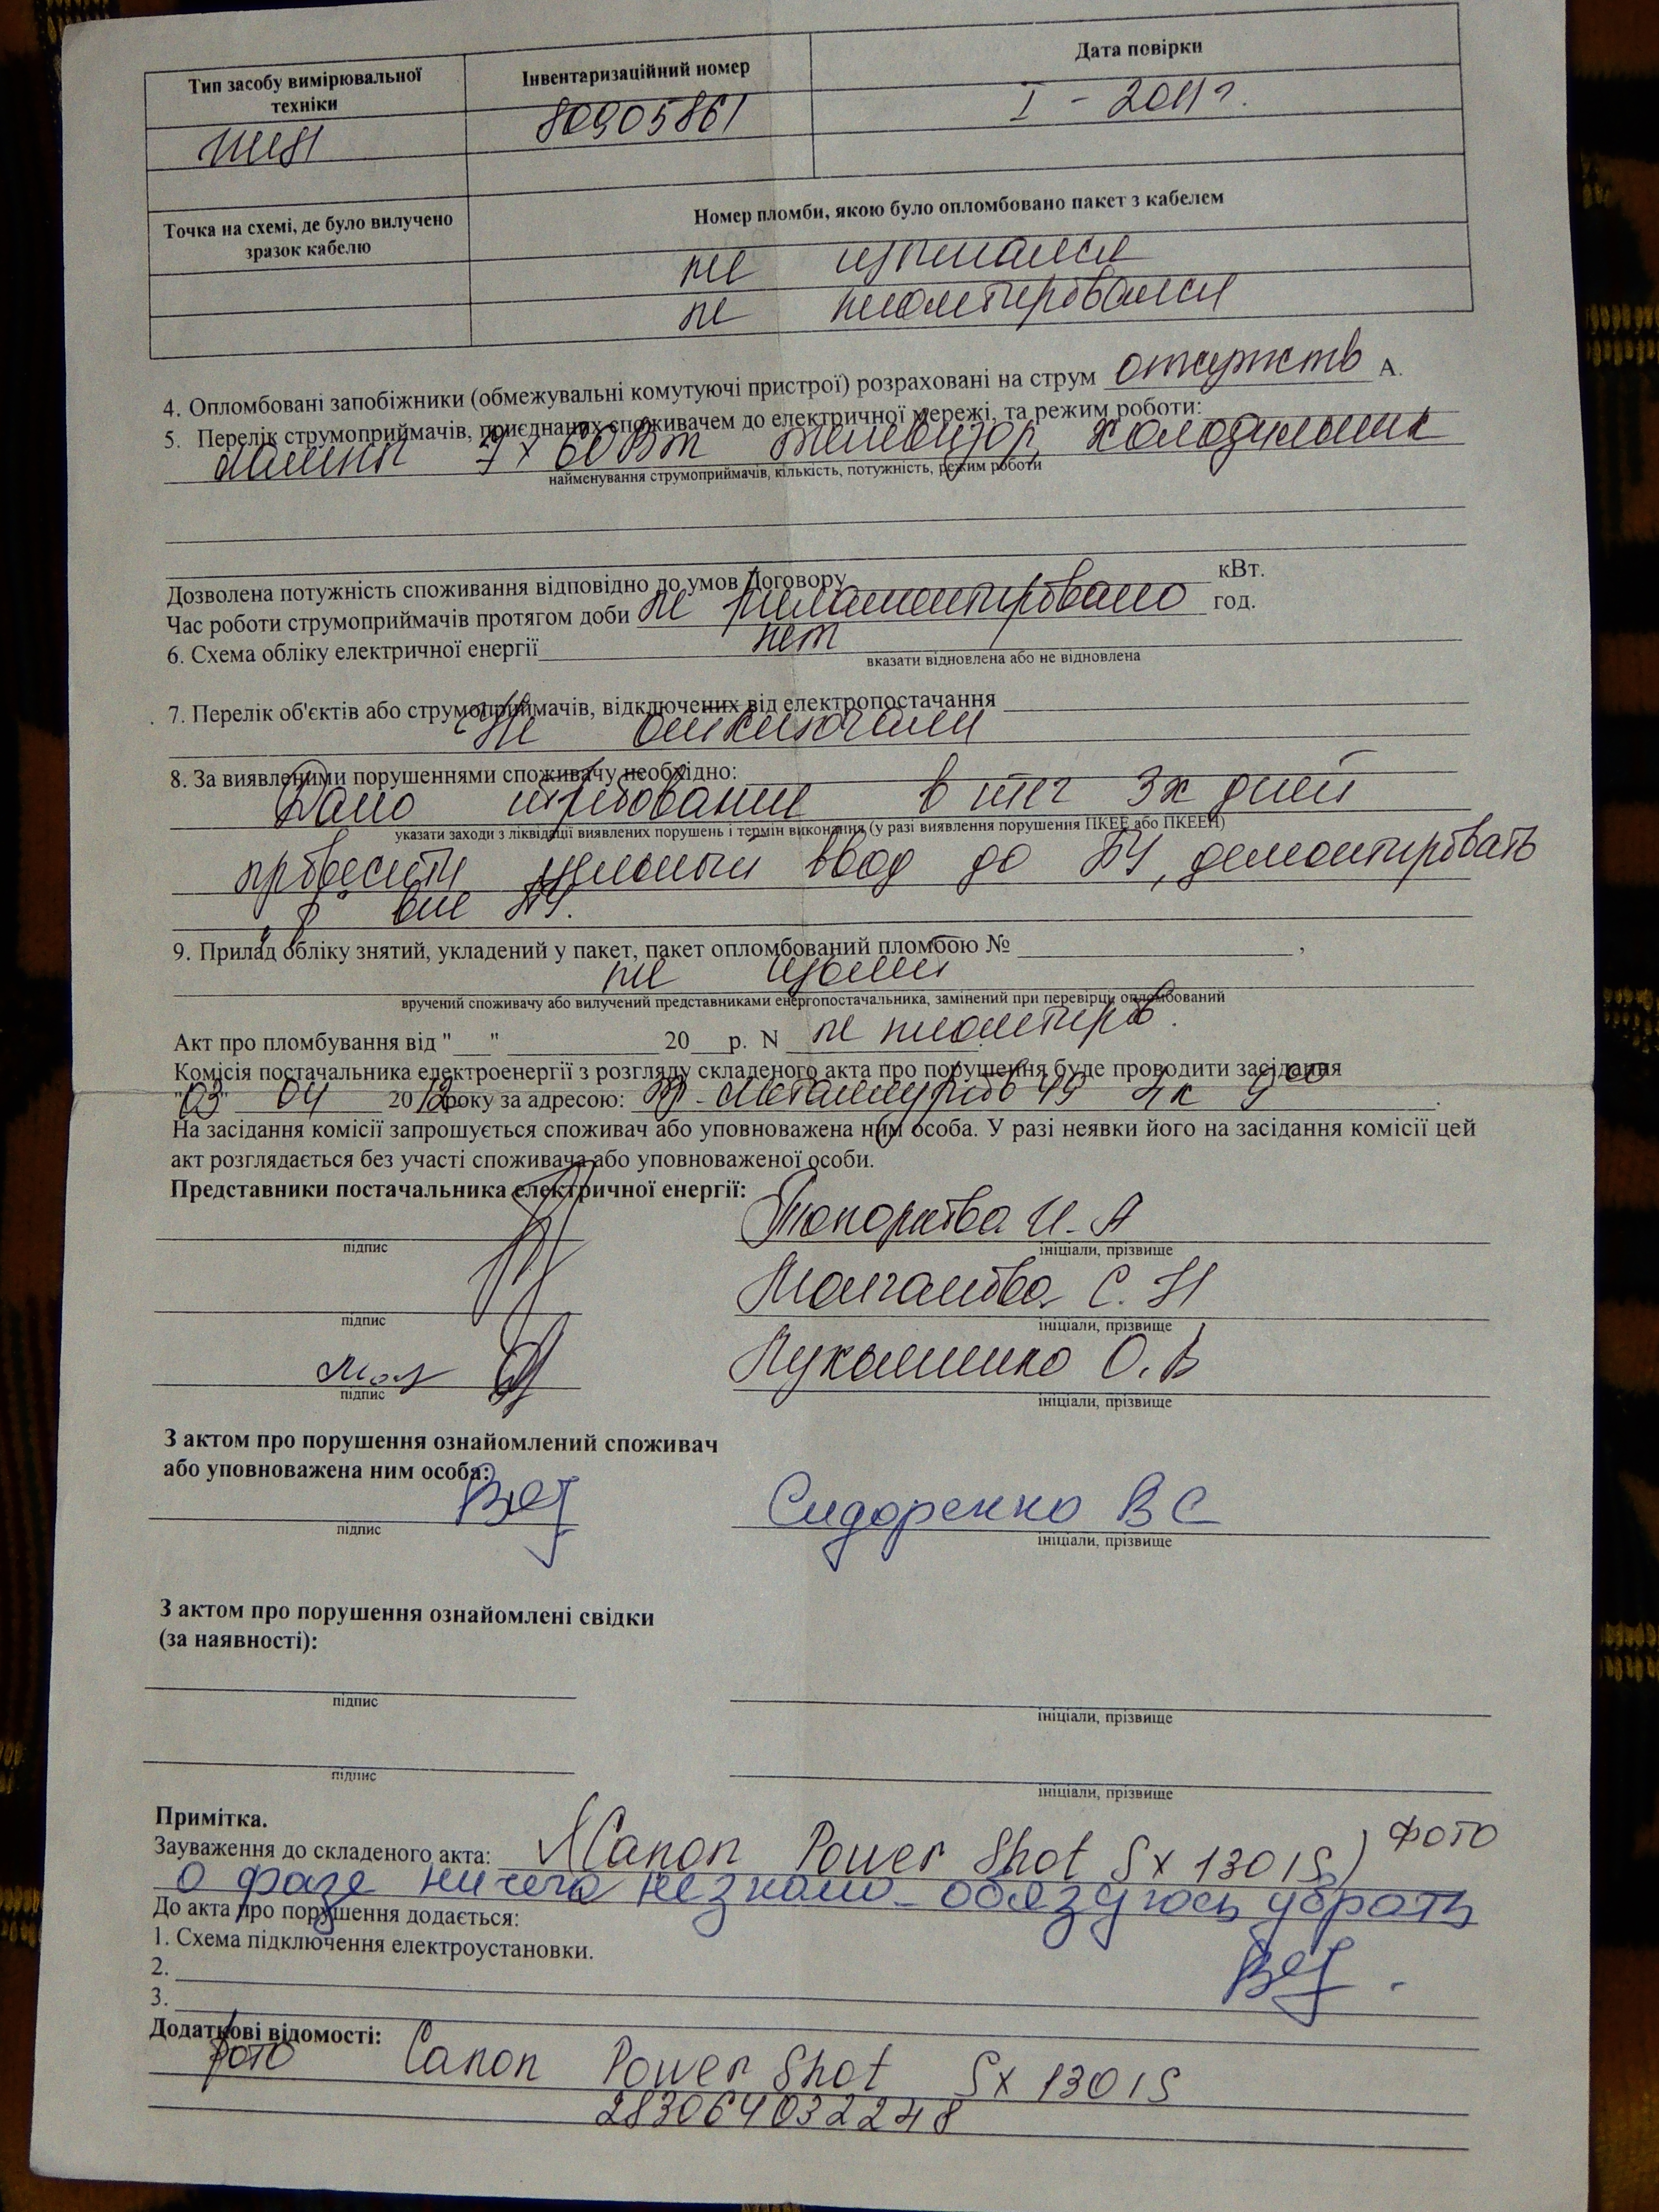 Тип засобу вимірювальної техніки
Інвентаризаційний номер
Дата повірки
80905861
I - 2011г.
Точка на схемі, де було вилучено зразок кабелю
Номер пломби, якою було опломбовано пакет з кабелем
не изымался
не пломбировался
4. Опломбовані запобіжники (обмежувальні комутуючі пристрої) розраховані на струм отсутств А.
5. Перелік струмоприймачів, приєднаних споживачем до електричної мережі, та режим роботи:
лампы 9 х 60Вт телевизор, холодильник
найменування струмоприймачів, кількість, потужність, режим роботи
Дозволена потужність споживання відповідно до умов Договору кВт.
Час роботи струмоприймачів протягом доби не регламентировано год.
6. Схема обліку електричної енергії нет
вказати відновлена або не відновлена
7. Перелік об'єктів або струмоприймачів, відключених від електропостачання
Не отключали
8. За виявленими порушеннями споживачу необхідно:
Дано требование в теч 3х дней
указати заходи з ліквідації виявлених порушень і термін виконання (у разі виявлення порушення ПКЕЕ або ПКЕЕН)
провести цельный ввод до ПУ, демонтировать
вне ПУ.
9. Прилад обліку знятий, укладений у пакет, пакет опломбований пломбою № ,
не изъяли
вручений споживачу або вилучений представниками енергопостачальника, замінений при перевірці опломбований
Акт про пломбування від " " 20 р. N не пломбиров.
Комісія постачальника електроенергії з розгляду складеного акта про порушення буде проводити засідання
"03" 04 2012року за адресою: пр. Металлургов 49 4к 9 00 .
На засідання комісії запрошується споживач або уповноважена ним особа. У разі неявки його на засідання комісії цей
акт розглядається без участі споживача або уповноваженої особи.
Представники постачальника електричної енергії:
Топоркова И. А
підпис ініціали, прізвище
С. Н
підпис ініціали, прізвище
Лукашенко О. В
підпис ініціали, прізвище
З актом про порушення ознайомлений споживач
або уповноважена ним особа:
Сидоренко В С
підпис ініціали, прізвище
З актом про порушення ознайомлені свідки
(за наявності):
підпис ініціали, прізвище
підпис ініціали, прізвище
Примітка.
Зауваження до складеного акта: Canon Power Shot Sx 130 IS) фото
о фазе ничего незнаю обязуюсь убрать
До акта про порушення додається:
1. Схема підключення електроустановки.
2.
3.
Додаткові відомості:
фото Canon Power Shot Sx 130 IS
283064032248